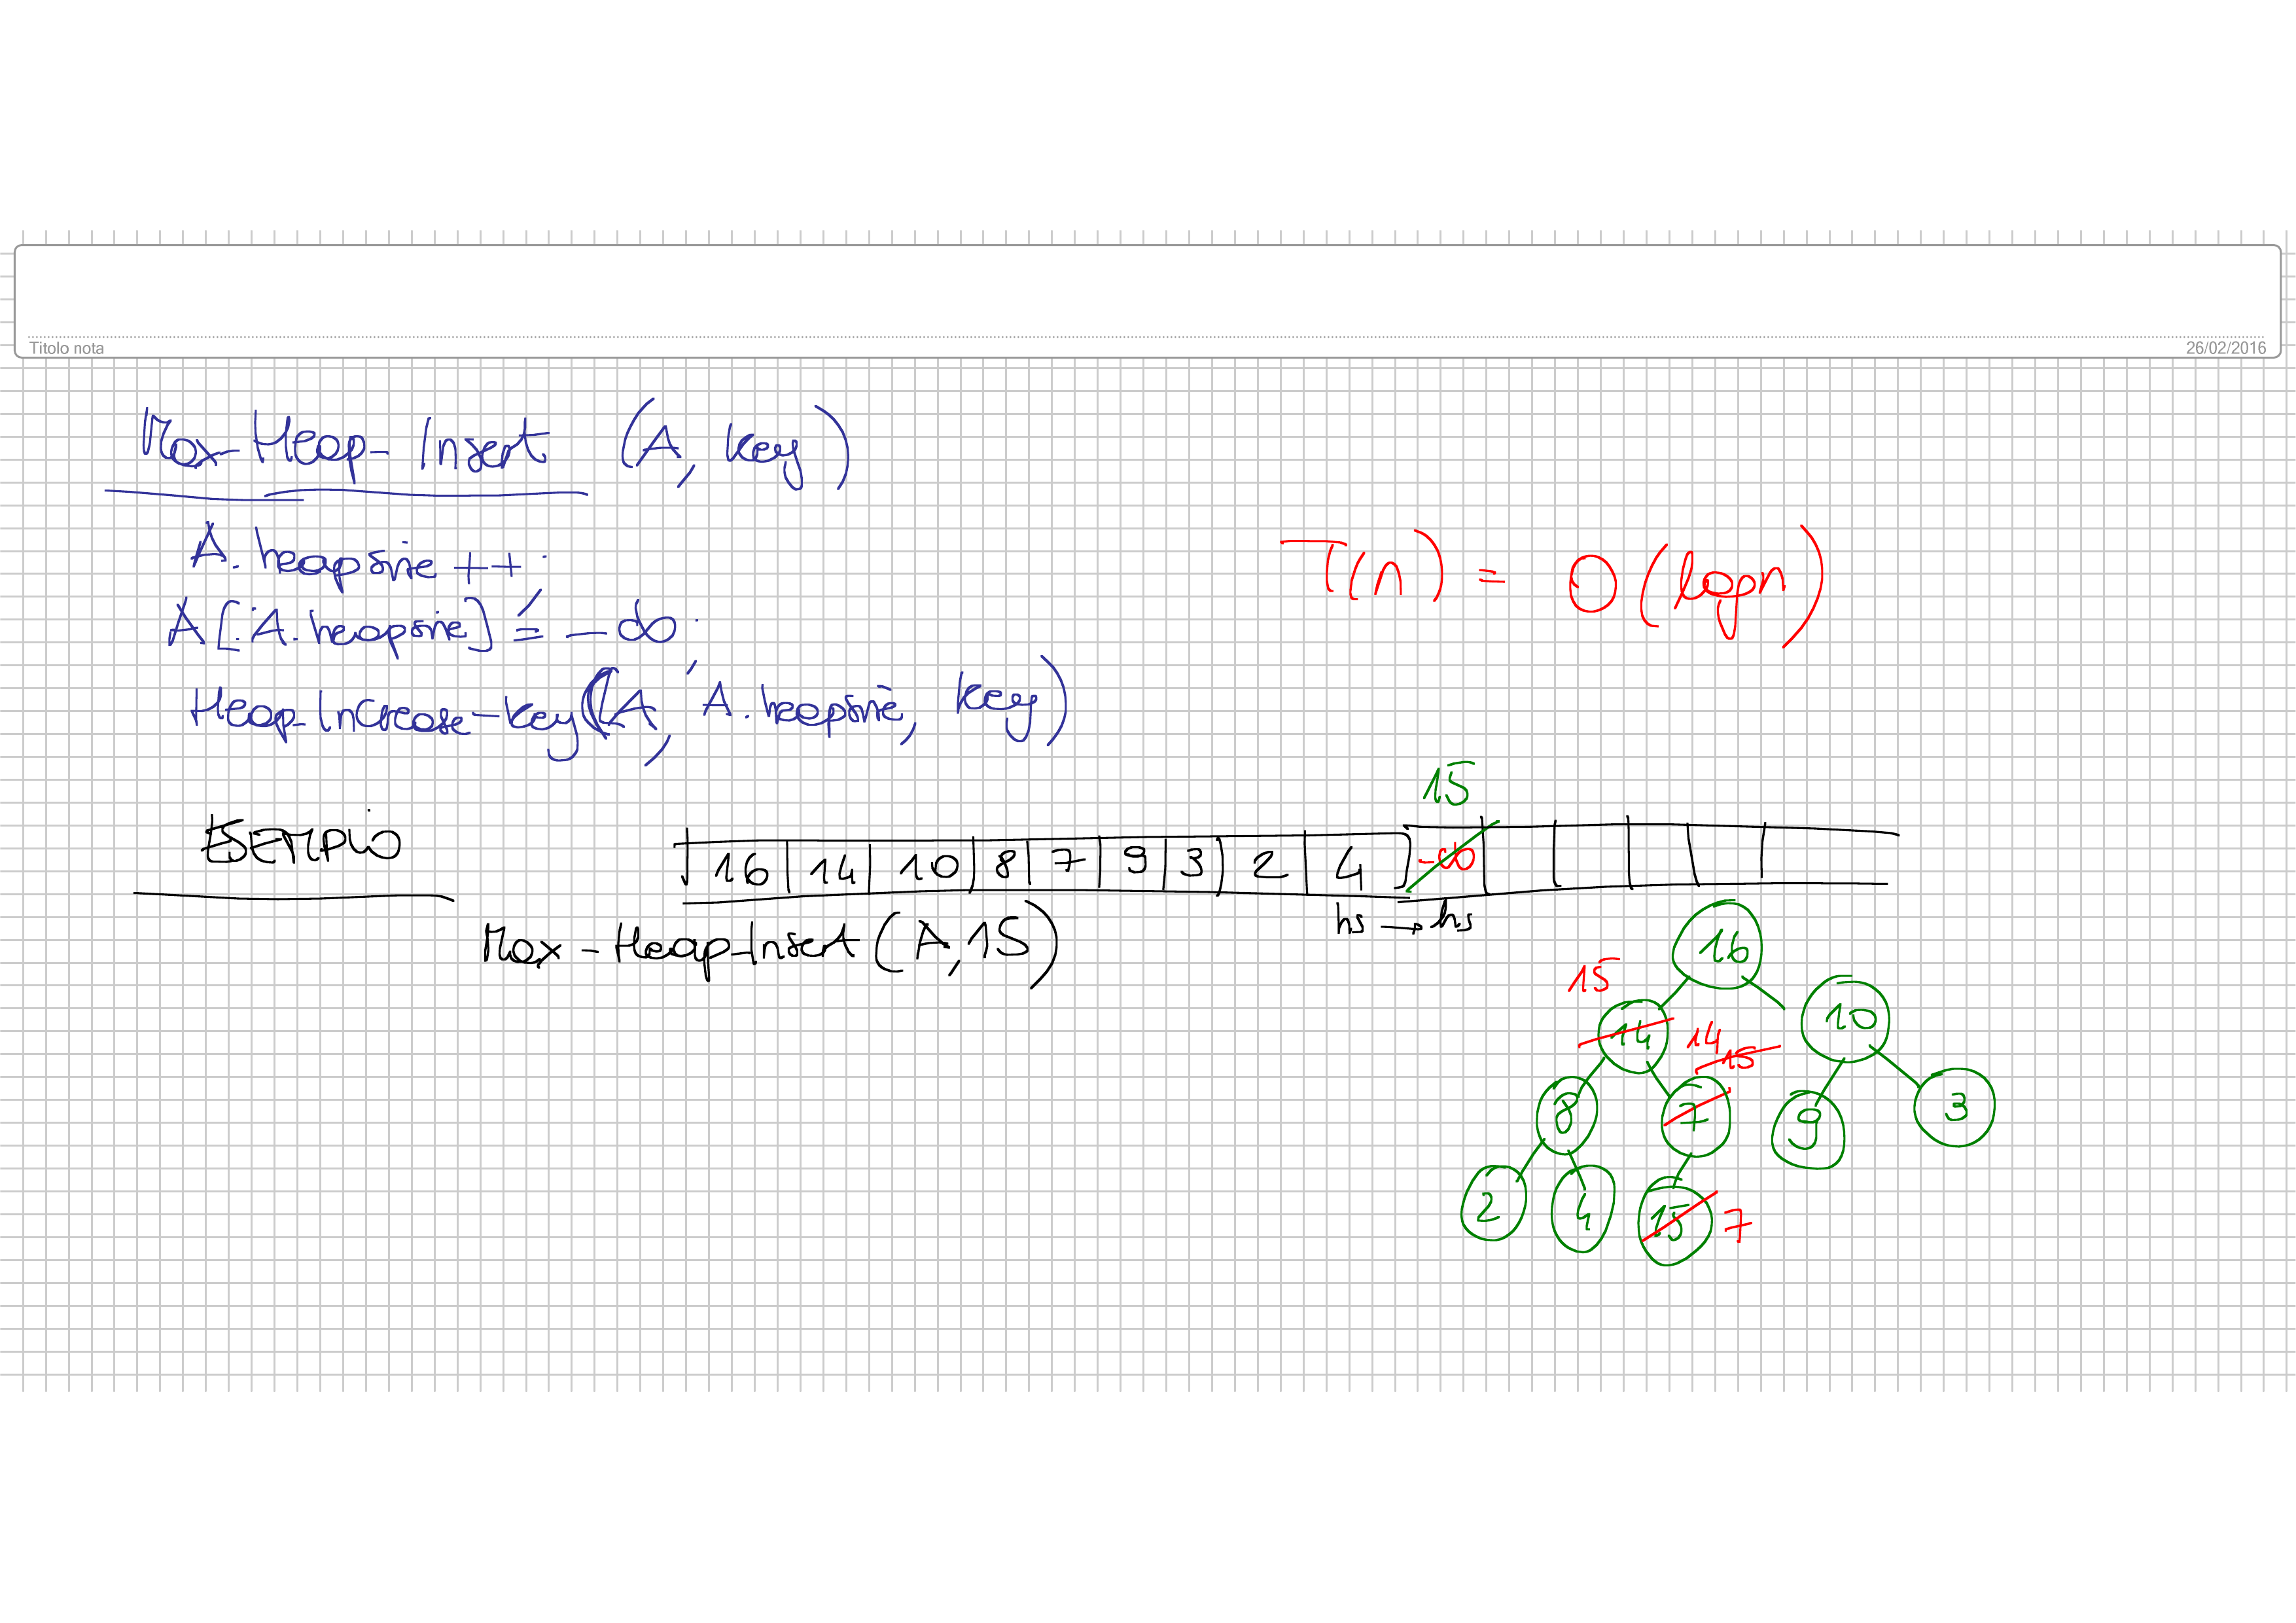 Titolo nota
26/02/2016
Max-Heap-Insert (A, key)
A.heapsize ++;
A[A.heapsize] = -∞;
Heap-Increase-key(A, A.heapsize, key)
T(n) = O(logn)
15
ESEMPIO
16 14 10 8 7 9 3 2 4 -∞
hs → hs
Max-Heap-Insert (A, 15)
16
15
14 14 15 10
8 7 9 3
2 4 15 7